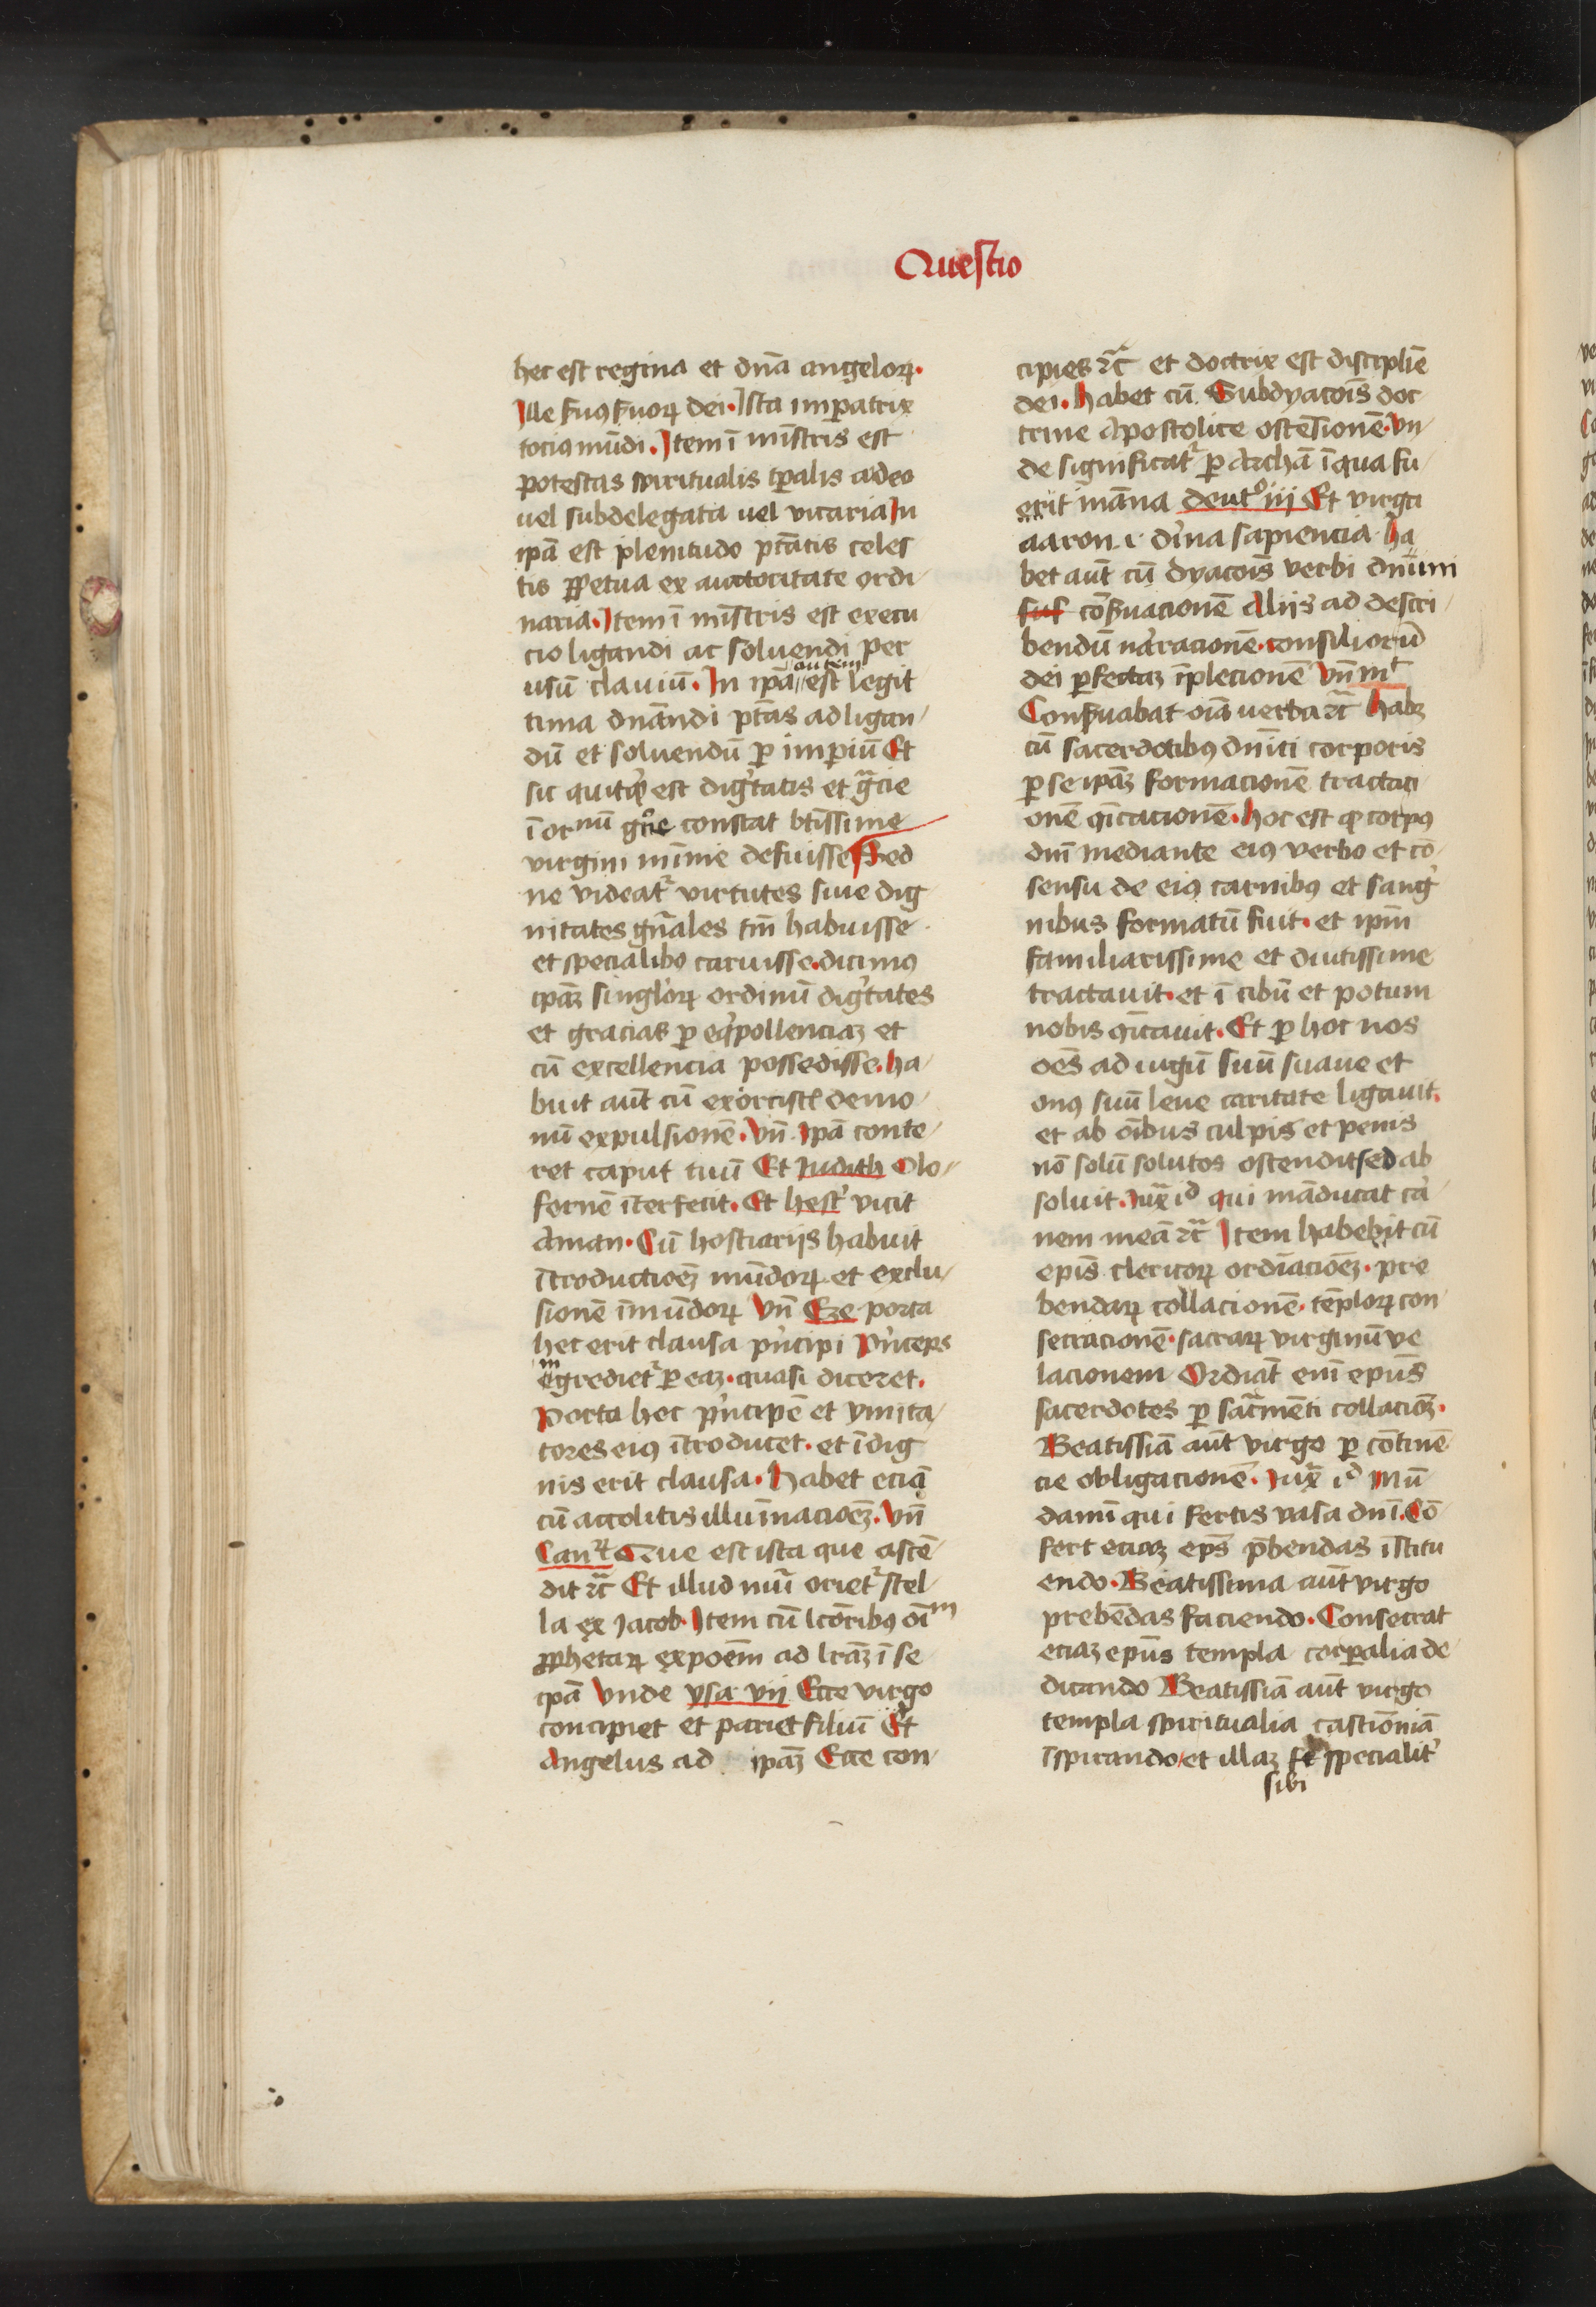 Questio
hec est regina et dn̄a angeloꝝ.
Ille ẜuꝰ ẜuoꝝ dei. Ista impatrix
tociꝰ mūdi. Itē ī mīstris est
potestas spiritualis tꝑalis a deo
uel subdelegata uel vicaria In
ipā est plenitudo ptātis celes
tis ꝑpetua ex auctoritate ordi
naria. Item ī mīstris est execu
cio ligandi ac soluendi per
usū clauiū. In ipā autem est legit
tima dnāndi ptās ad ligan
dū et soluendū ꝑ imꝑiū Et
sic quitqͥd est digͥtatis et gͣcie
ī oı̄nū gn̄e constat btīssime
virgini mīnie defuisse Sed
ne videatͬ virtutes siue dig
nitates gn̄ales tm̄ habuisse
et specialibꝰ caruisse. dicimꝰ
ipāꝫ singl'oꝝ ordinū digͥtates
et gracias ꝑ eqͥpollenciaꝫ et
cū excellencia possedisse. ha
buit aūt cū exorcist̄ demo
nū expulsionē. Vn̄ Ipā conte
ret caput tuū Et Iudith Olo
fernē īterfecit. Et hest' vicit
Aman. Cū hostiarijs habuit
ītroductōeꝫ mūdoꝝ et exclu
sionē īmūdoꝝ Vn̄ Eze porta
hec erit clausa pͥncipi Pͥnceps
ingredietͬ ꝑ eaꝫ. quasi diceret.
Porta hec pͥncipē et ymita
tores eiꝰ ītroducet. et īdig
nis erit clausa. Habet eciā
cū accolitis illuīnacōeꝫ. Vn̄
Can̄ᵗ Que est ista que ascē
dit ⁊c̄ Et illud nūͥ orietͬ stel
la ex Iacob. Item cū lc̄oribꝰ oīm
ꝓphetaꝝ expōem ad lrāꝫ ī se
ipā Vnde ysa vij Ecce virgo
concipiet et pariet filiū Et
Angelus ad ipāꝫ Ecce con
cipies ⁊c̄ et doctrix est discipliē
dei. Habet cū Subdyacoīs doc
trine Apostolice ostēsionē. Vn
de significatͬ ꝑ Archā ī qua fu
erit māna deutᵒ iij Et virga
aaron .i. dīna sapiencia Ha
bet aūt cū dyacoīs verbi dnīni
suf cōẜuacionē Aliis ad descri
bendū narracionē. consiliorū
dei ꝑfectaꝫ īpletionē Vn̄ mᵗ
Conẜuabat oīa uerba ⁊c̄ Habꝫ
cū sacerdotibꝰ dnīci corporis
ꝑ se ipāꝫ formacionē tractaci
onē ꝯīcacionē. Hoc est qꝫ corpꝰ
dnī mediante eiꝰ verbo et cō
sensu de eiꝰ carnibꝰ et sangͥ
nibus formatū fuit. et ipm̄
familiarissime et diutissime
tractauit. et ī cibū et potum
nobis ꝯīcauit. Et ꝑ hoc nos
oēs ad iugū suū suaue et
onꝰ suū leue caritate ligauit.
et ab oībus culpis et penis
nō solū solutos ostendit sed ab
soluit. Iuxͣ iᵈ qui māducat cā
nem meā ⁊c̄ Item habebit cū
epīs clericoꝝ ordīacōeꝫ. pre
bendaꝝ collacionē. tēploꝝ con
secracionē. sacraꝝ virginū ve
lacionem Ordīat enī epūs
sacerdotes ꝑ sacͣmēti collacōꝫ.
Beatissīa aūt virgo ꝑ cōtinē
cie obligacionē. Iuxͣ iᵈ Mū
damī qui fertis vasa dnī. Cō
fert eciaꝫ eps̄ p̄bendas īstitu
endo. Beatissima aūt virgo
prebēdas faciendo. Consecrat
eciaꝫ epūs templa corꝑalia de
dicando Beatissīa aūt virgo
templa spiritualia castīoniā
īspirando et illaꝫ specialit'
sibi